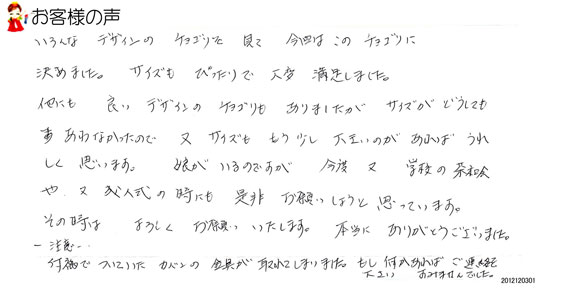 お客様の声
いろんな デザインの チョゴリを 見て 今回は この チョゴリに
決めました。 サイズも ぴったりで 大変 満足しました。
他にも 良い デザインの チョゴリも ありましたが サイズが どうしても
あわなかったので 又 サイズも もう少し 大きいのが あれば うれ
しく 思います。 娘が いるのですが 今後 又 学校の
や 又 成人式の 時にも 是非 お願いしようと 思っています。
その時は よろしく お願い いたします。 本当に ありがとうございました。
ー 注意 ー
付属で ついていた カバンの 金具が 取れてしまいました。 もし 何かあれば ご連絡を
すみませんでした。
2012120301